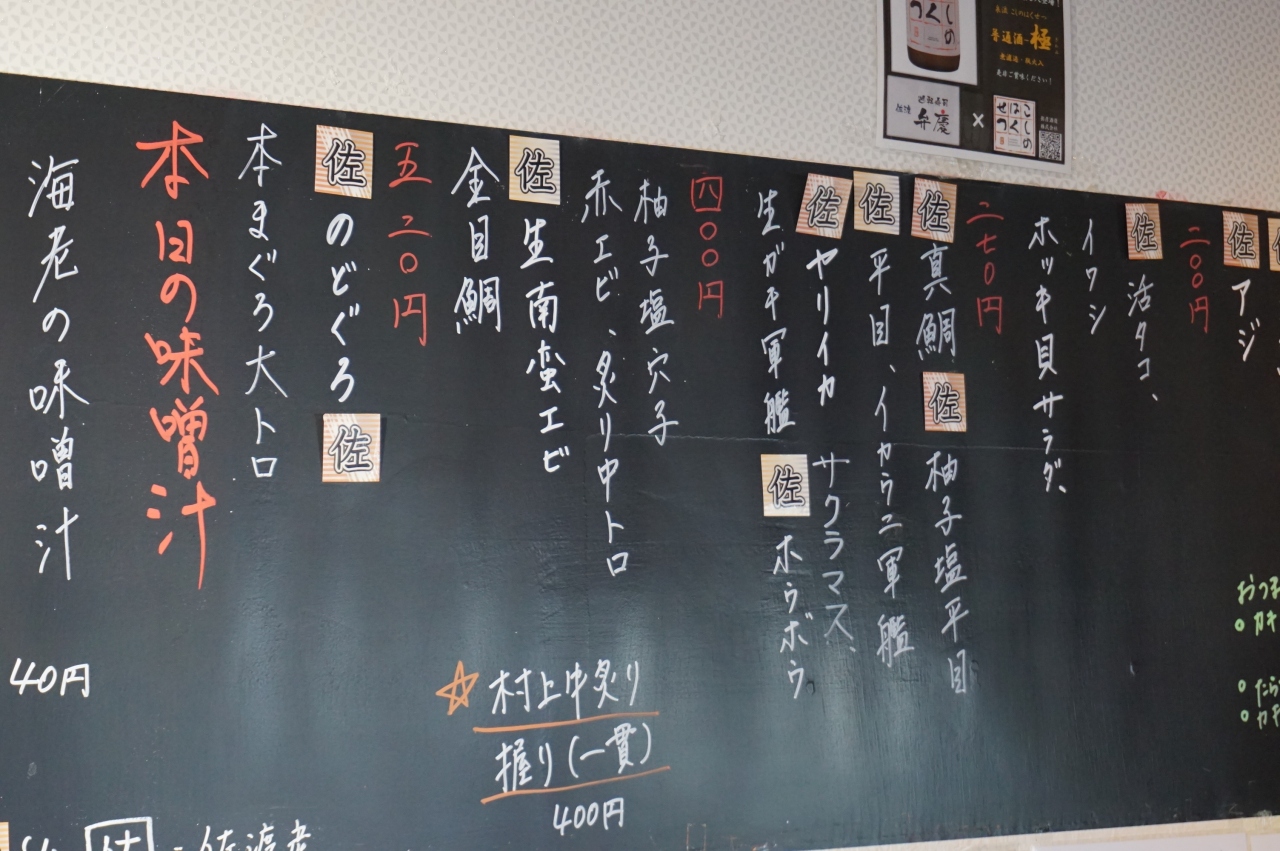 佐 アジ
二〇〇円
佐 活タコ、
イワシ
ホッキ貝サラダ、
二七〇円
佐 真鯛 佐 柚子塩平目
佐 平目、イカウニ軍艦
佐 ヤリイカ サクラマス、
生ガキ軍艦 佐 ホウボウ
四〇〇円
柚子塩穴子
赤エビ、炙り中トロ
佐 生南蛮エビ
金目鯛
五二〇円
佐 のどぐろ 佐
本まぐろ大トロ
本日の味噌汁
海老の味噌汁
40円
☆村上牛炙り
握り(一貫)
400円
普通酒-極
弁慶
×
こしの
はく
せつ